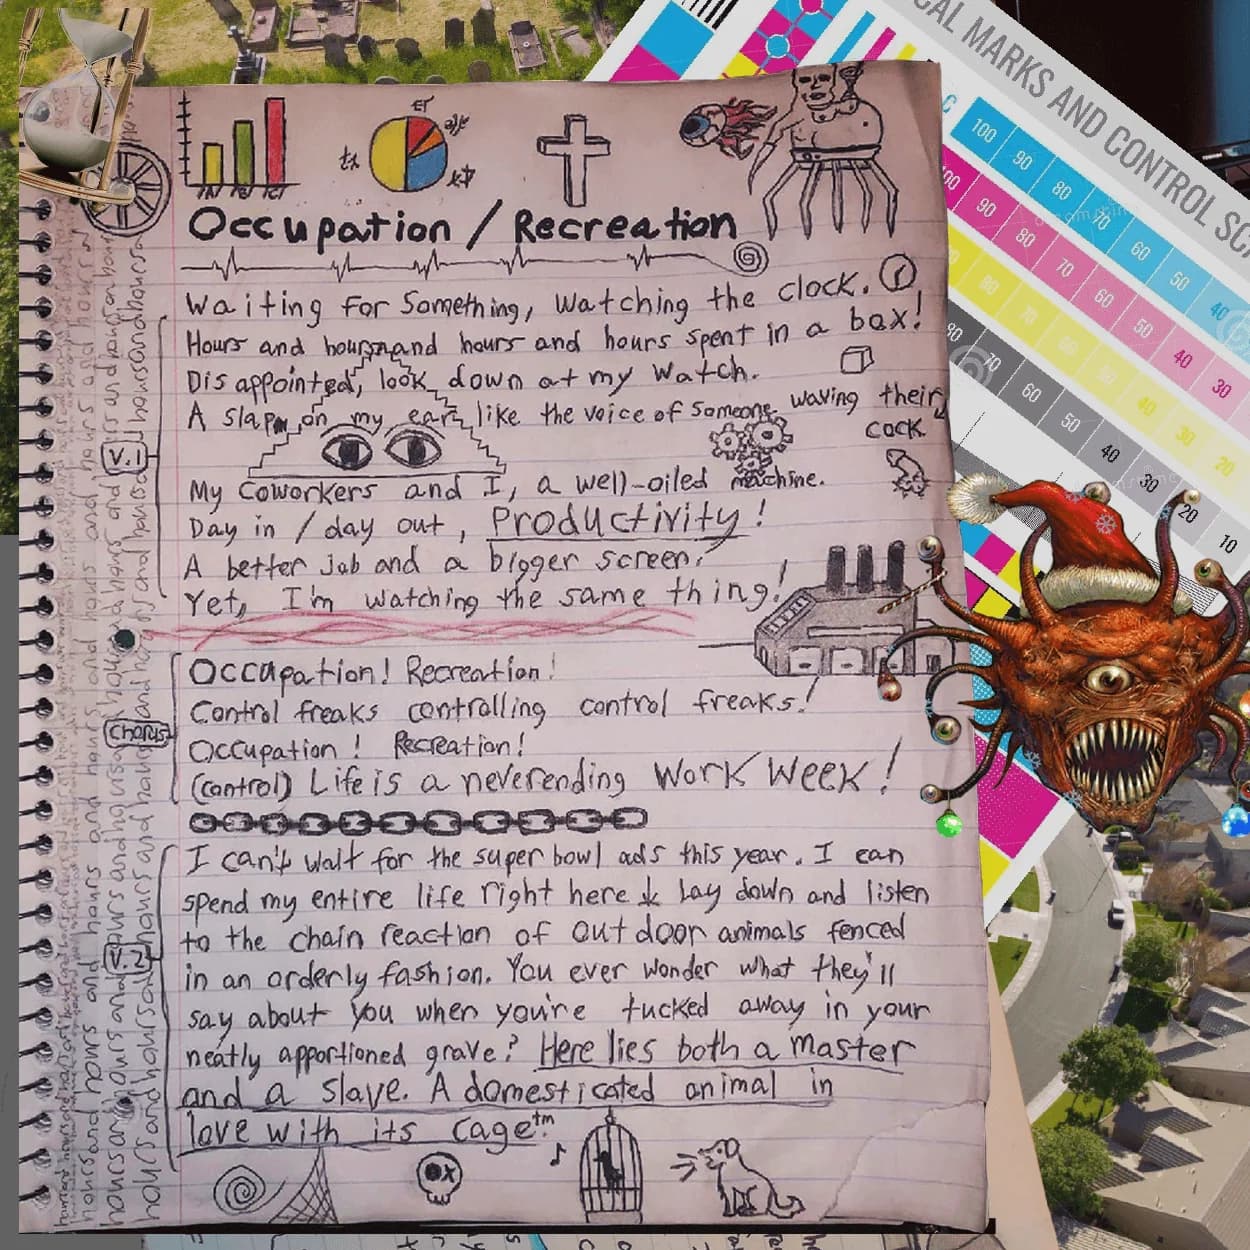 CAL MARKS AND CONTROL SC
C 100 90 80 70 60 50 40
100 90 80 70 60 50 40 30
80 40 30 20
80 70 60 50 40 30 20 10
Occupation / Recreation
Waiting for Something, watching the clock.
Hours and hoursand hours and hours spent in a box!
Disappointed, look down at my watch.
A slap on my ear, like the voice of someone waving their
cock.
V.1
My Coworkers and I, a well-oiled machine.
Day in / day out, Productivity!
A better job and a bigger screen!
Yet, I'm watching the same thing!
Occupation! Recreation!
Control freaks controlling control freaks!
Chorus
Occupation! Recreation!
(control) Life is a neverending Work Week!
I can't wait for the super bowl ads this year. I can
spend my entire life right here & lay down and listen
to the chain reaction of outdoor animals fenced
V.2
in an orderly fashion. You ever wonder what they'll
say about you when you're tucked away in your
neatly apportioned grave? Here lies both a master
and a slave. A domesticated animal in
love with its cage™.
hours and hours and hours and hours and hours